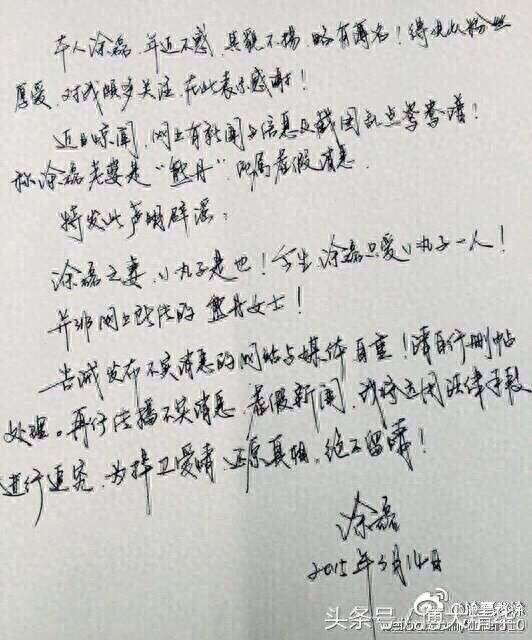 本人涂磊 年近不惑 其貌不扬 略有薄名！得也以粉丝
厚爱，对我颇多关注 在此表示感谢！
近日惊闻，网上有新闻与信息及截图乱点鸳鸯谱！
称涂磊老婆是“熊丹”，所属虚假消息。
特发此声明辟谣：
涂磊之妻，小丸子是也！今生 涂磊只爱小丸子一人！
并非网上所传的 熊丹女士！
告诫发布不实消息的网站与媒体自重！请自行删帖
处理。再行传播不实消息 虚假新闻，我将运用法律手段
进行追究，为捍卫爱情 还原真相，绝不留情！
涂磊
2015年3月14日
头条号／博大精华